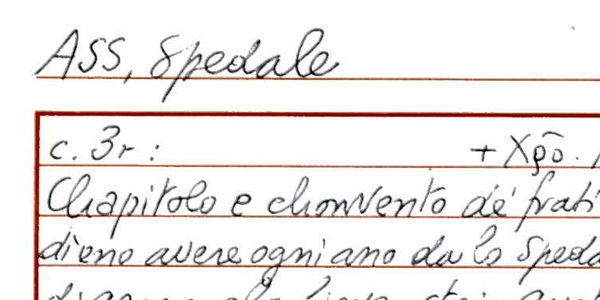 ASS, Spedale
c. 3r: + Xpō.
Chapitolo e chonvento de' frati
dieno avere ogni ano da lo Speda